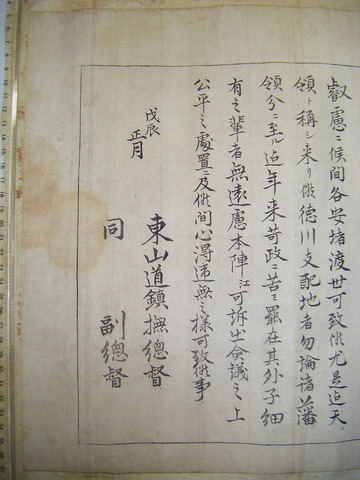 叡慮ニ候間各安堵渡世可致候尤是迄天
領ト称シ来リ候徳川支配地者勿論諸藩
領分ニ至ル迄年来苛政ニ苦ミ罷在其外子細
有之輩者無遠慮本陣江可訴出僉議之上
公平之處置ニ及候間心得違無之様可致候事
戊辰
正月
東山道鎮撫総督
同 副總督